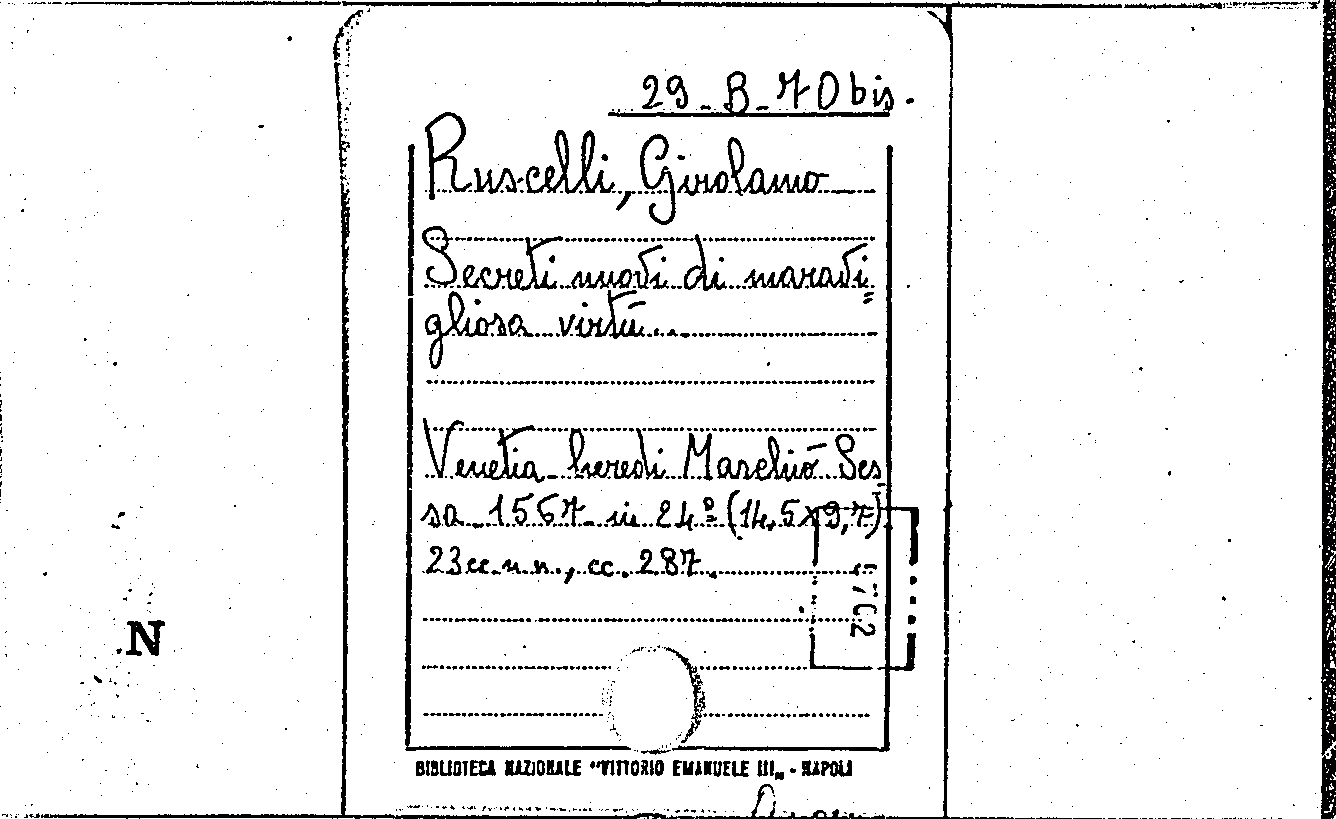 29-B-70 bis.
Ruscelli, Girolamo
Secreti nuovi di maravi=
gliosa virtù...
Venetia heredi Marchiò Ses
sa 1567 in 24º (14,5x9,7)
23cc.n.n., cc. 287.
N
BIBLIOTECA NAZIONALE "VITTORIO EMANUELE III„ - NAPOLI